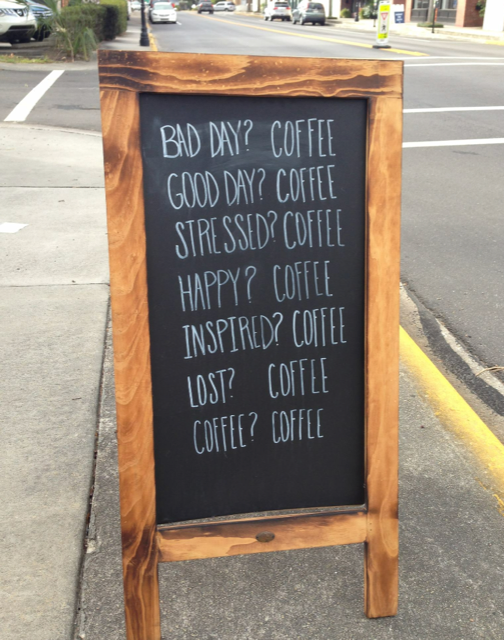 BAD DAY? COFFEE
GOOD DAY? COFFEE
STRESSED? COFFEE
HAPPY? COFFEE
INSPIRED? COFFEE
LOST? COFFEE
COFFEE? COFFEE